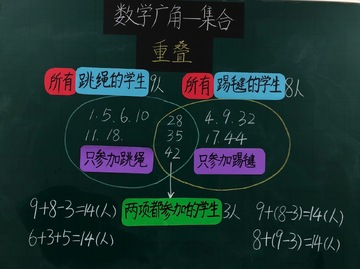 数学广角—集合
重叠
所有 跳绳的学生 9人
所有 踢毽的学生 8人
1.5.6.10
11.18.
28
35
42
4.9.32
17.44
只参加跳绳
只参加踢毽
两项都参加的学生 3人
9+8-3=14(人)
6+3+5=14(人)
9+(8-3)=14(人)
8+(9-3)=14(人)